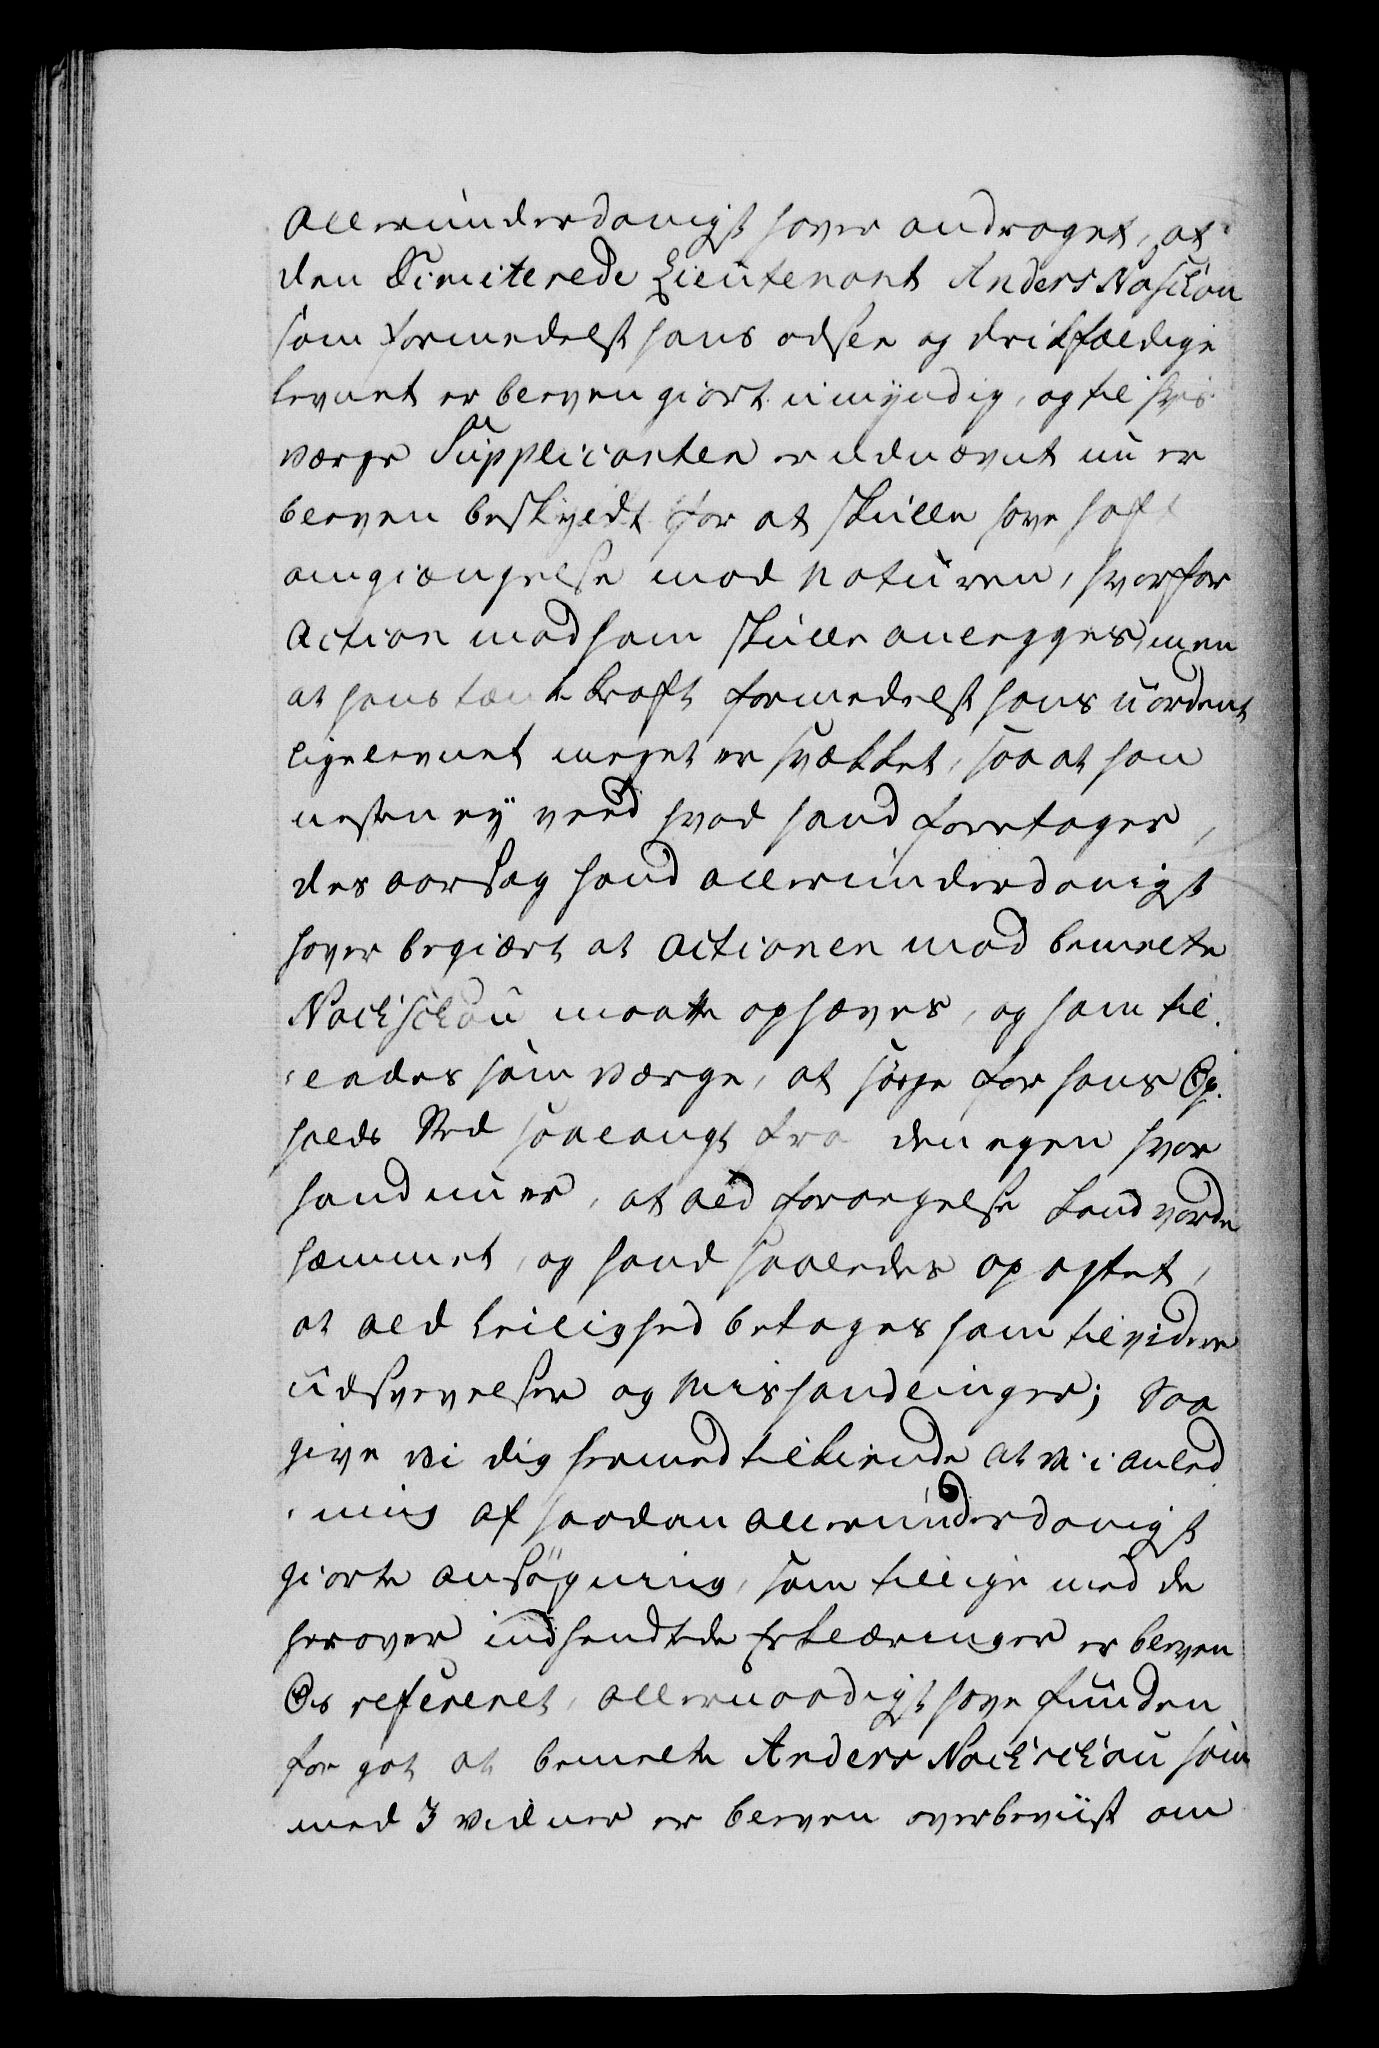 allerunderdanigst haver andraget, at
den Dimiterede Lieutenant Anders Naschou
som formedelst hans ødsle og drikfældige
levnet er bleven giort umyndig, og til hvis
værge Supplicanten er udnævnt nu er
bleven beskyldt for at skulle have haft
omgiængelse mod Naturen, hvorfor
Action mod ham skulle anlegges, men
at hans tænkekraft formedelst hans uordent
lige levnet meget er svækket, saa at han
nesten ey veed hvad hand foretager,
des aarsag hand allerunderdanigst
haver begiært at Actionen mod bemelte
Nackschou maatte ophæves, og ham til-
lades som værge, at sørge for hans Op-
holds Sted saalangt fra den egen hvor
hand nu er, at ald forargelse kand vorde
hæmmet, og hand saaledes opagtet,
at ald leilighed betages ham til videre
udsvevelser og Mishandlinger; Saa
give vi dig hermed tilkiende at vi i anled
ning af saadan allerunderdanigst
giorte ansøgning, som tillige med de
herover indhendtede Erklæringer er bleven
Os refereret, allernaadigst have funden
for got at bemelte Anders Nackschou som
med 3 vidner er bleven overbeviist om